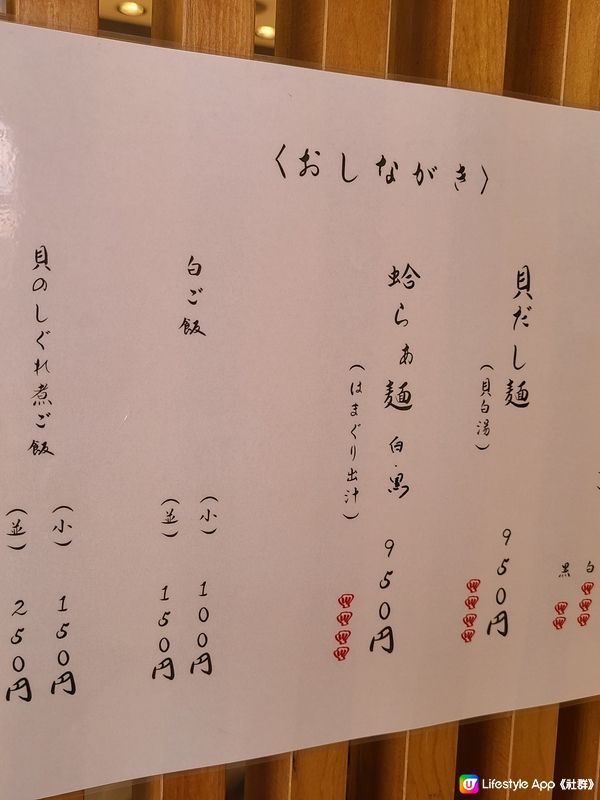 〈おしながき〉
白
黒
貝だし麺
(貝白湯)
950円
蛤らぁ麺 白・黒
(はまぐり出汁)
950円
白ご飯
(小)
100円
(並)
150円
貝のしぐれ煮ご飯
(小)
150円
(並)
250円
Lifestyle App《社群》